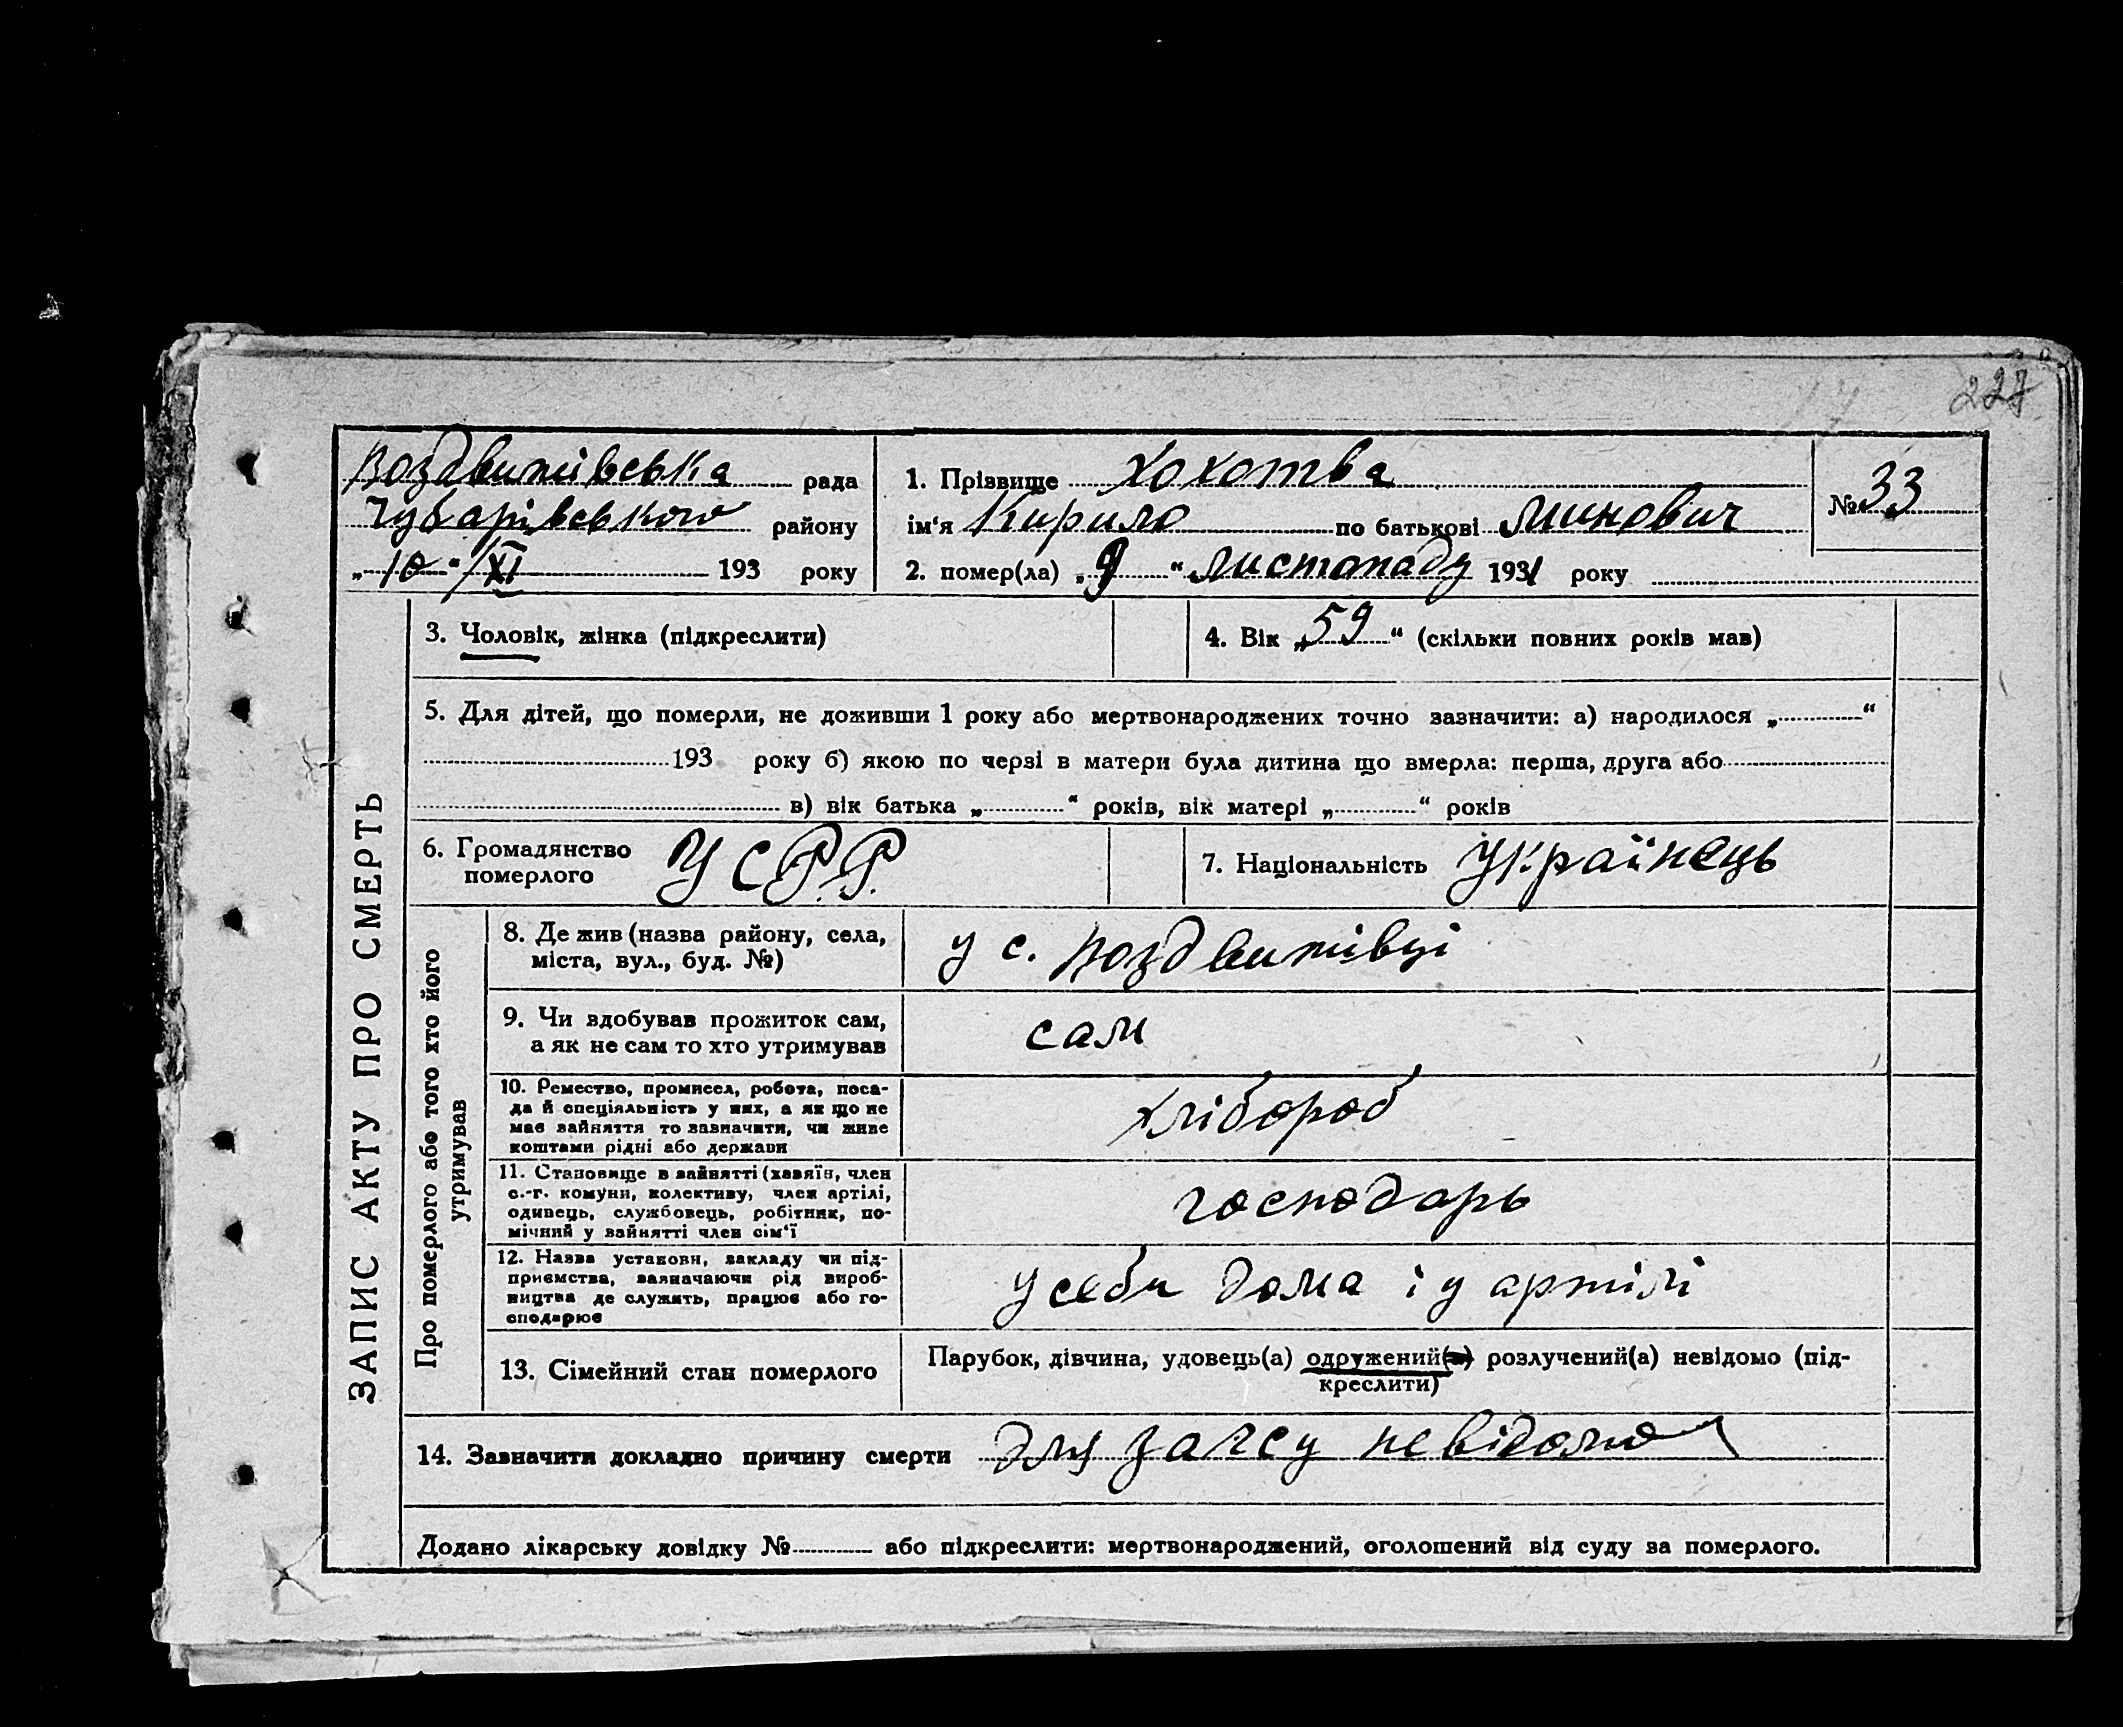 227
Воздвижівська рада
Чубарівського району
„10“/XI 193 року
1. Прізвище Хохотва
ім‘я Кирило по батькові Минович
2. помер(ла) „9“ листопаду 1931 року
№ 33
ЗАПИС АКТУ ПРО СМЕРТЬ
3. Чоловік, жінка (підкреслити)
4. Вік „59“ (скільки повних років мав)
5. Для дітей, що померли, не доживши 1 року або мертвонароджених точно зазначити: а) народилося „ “
193 року б) якою по черзі в матери була дитина що вмерла: перша, друга або
в) вік батька „ “ років, вік матері „ “ років
6. Громадянство
померлого
УСРР.
7. Національність українець
Про померлого або того хто його
утримував
8. Де жив (назва району, села,
міста, вул., буд. №)
у с. Воздвижівці
9. Чи здобував прожиток сам,
а як не сам то хто утримував
сам
10. Ремество, промисел, робота, поса-
да й спеціяльність у них, а як що не
має зайняття то зазначити, чи живе
коштами рідні або держави
хлібороб
11. Становище в зайнятті (хазяїн, член
с.-г. комуни, колективу, член артілі,
одинець, службовець, робітник, по-
мічний у зайнятті член сім‘ї
господарь
12. Назва установи, закладу чи під-
приємства, зазначаючи рід вироб-
ництва де служить, працює або го-
сподарює
у себи дома і у артілі
13. Сімейний стан померлого
Парубок, дівчина, удовець(а) одружений(а) розлучений(а) невідомо (під-
креслити)
14. Зазначити докладно причину смерти для загсу невідомо
Додано лікарську довідку № або підкреслити: мертвонароджений, оголошений від суду за померлого.